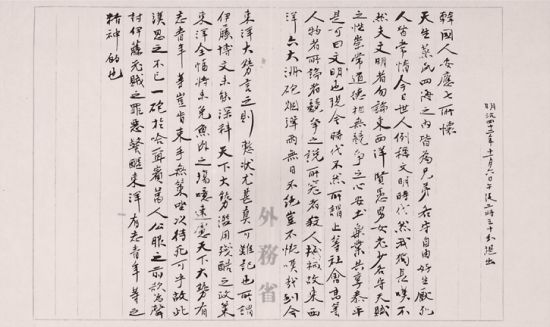 明治四十二年十一月六日午後二時三十分提出
韓國人安應七所懷
天生蒸民四海之內皆爲兄弟各守自由好生厭死
人皆常情今日世人例稱文明時代然我獨長嘆不
然夫文明者勿論東西洋賢愚男女老少各守天賦
之性崇常道德相無競爭之心安土樂業共享泰平
是可曰文明也現今時代不然所謂上等社會高等
人物者所論者競爭之說所究者殺人機械故東西
洋六大洲砲煙彈雨無日不絶豈不慨嘆哉到今
外務省
東洋大勢言之則慘狀尤甚真可難記也所謂
伊藤博文未能深料天下大勢濫用殘酷之政策
東洋全幅將未免魚肉之場噫遠慮天下大勢有
志青年等豈肯束手無策坐以待死可乎故此
漢思之不已一砲於哈爾賓萬人公眼之前欲爲聲
討伊藤老賊之罪惡警醒東洋有志青年等之
精神的也